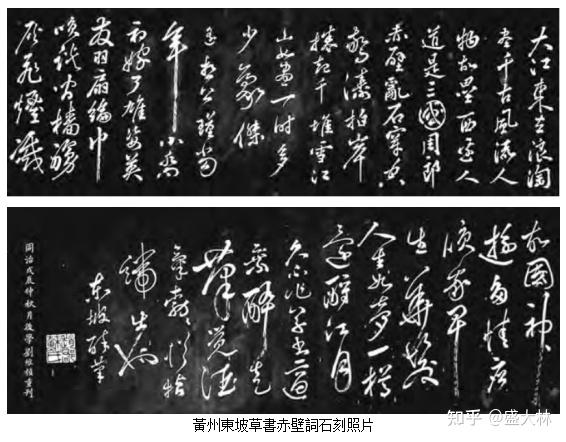 大江東去浪淘
盡千古風流人
物故壘西邊人
道是三國周郎
赤壁亂石穿空
驚濤拍岸
捲起千堆雪江
山如畫一时多
少豪傑
遙想公瑾當
年小喬
初嫁了雄姿英
發羽扇綸巾
笑談間檣艣
灰飛煙滅
故國神
遊多情應
笑我早
生華髮
人生如夢一樽
還酹江月
久不作草書適
乘醉走
筆覺酒
氣勃勃從指
端出也
東坡醉筆
同治戊辰仲秋月後學劉維楨重刊
黃州東坡草書赤壁詞石刻照片
知乎 @盛大林